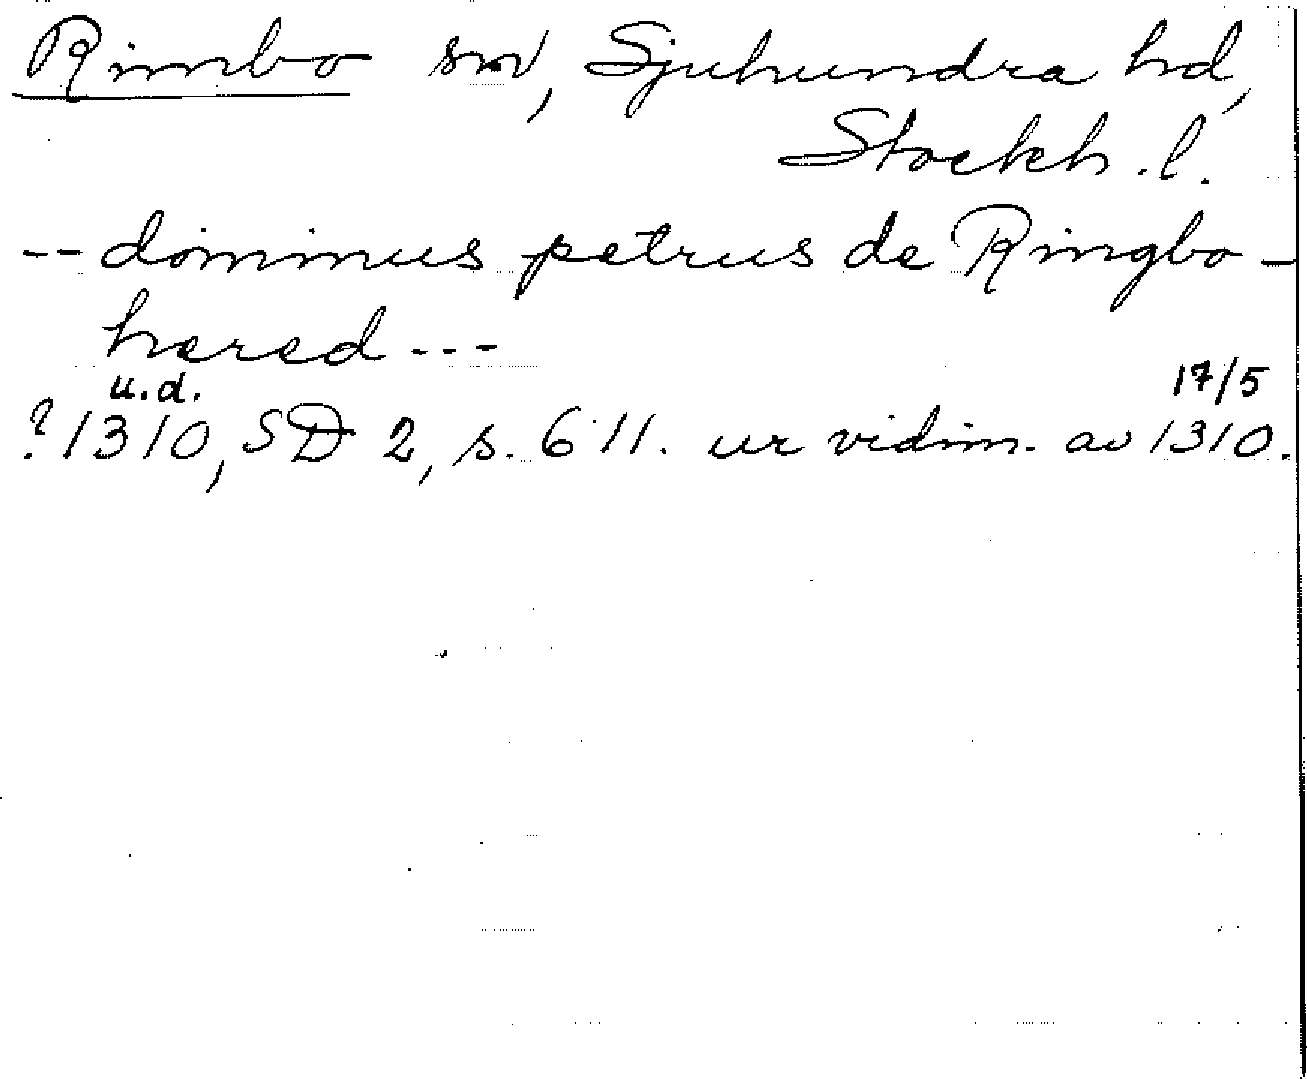 Rimbo sn, Sjuhundra hd,
Stockh. l.
-- dominus petrus de Ringbo-
hæred ---
u.d. 17/5
? 1310, SD 2, s. 611. ur vidim. av 1310.